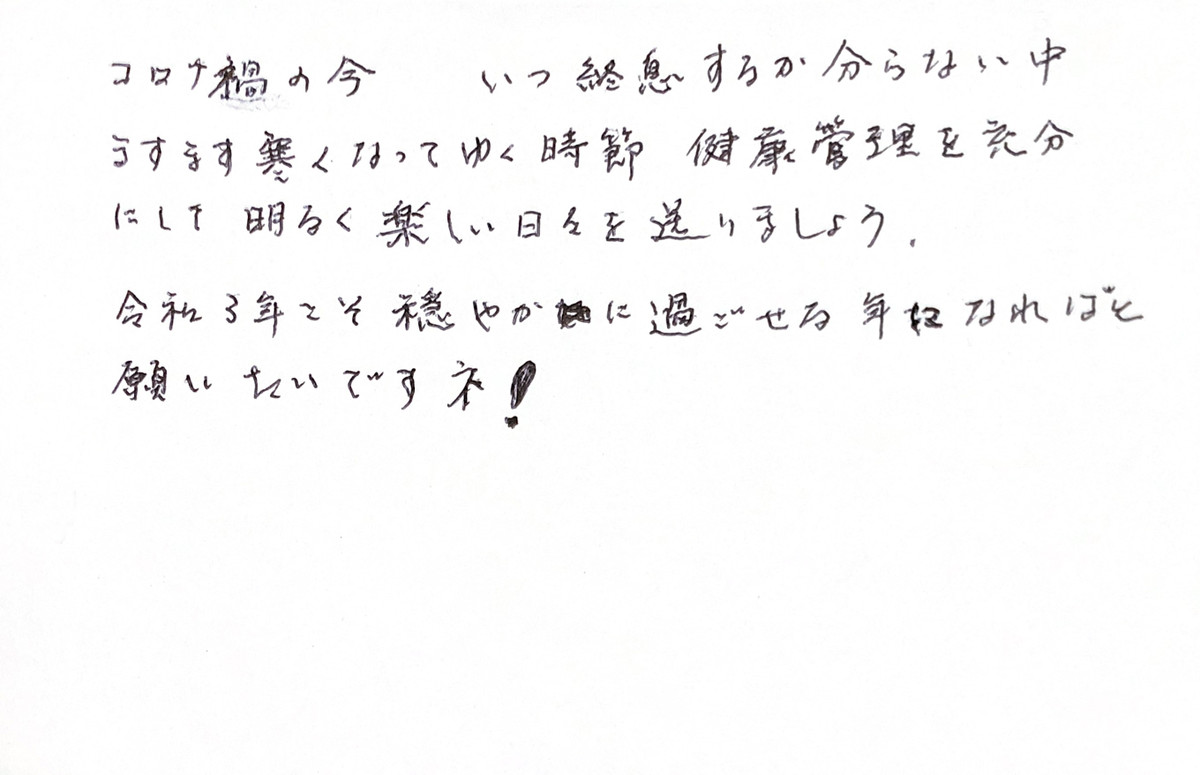 コロナ禍の今　いつ終息するか分らない中
ますます寒くなってゆく時節 健康管理を充分
にして 明るく楽しい日々を送りましょう.
令和3年こそ穏やかに過ごせる年になればと
願いたいですネ!